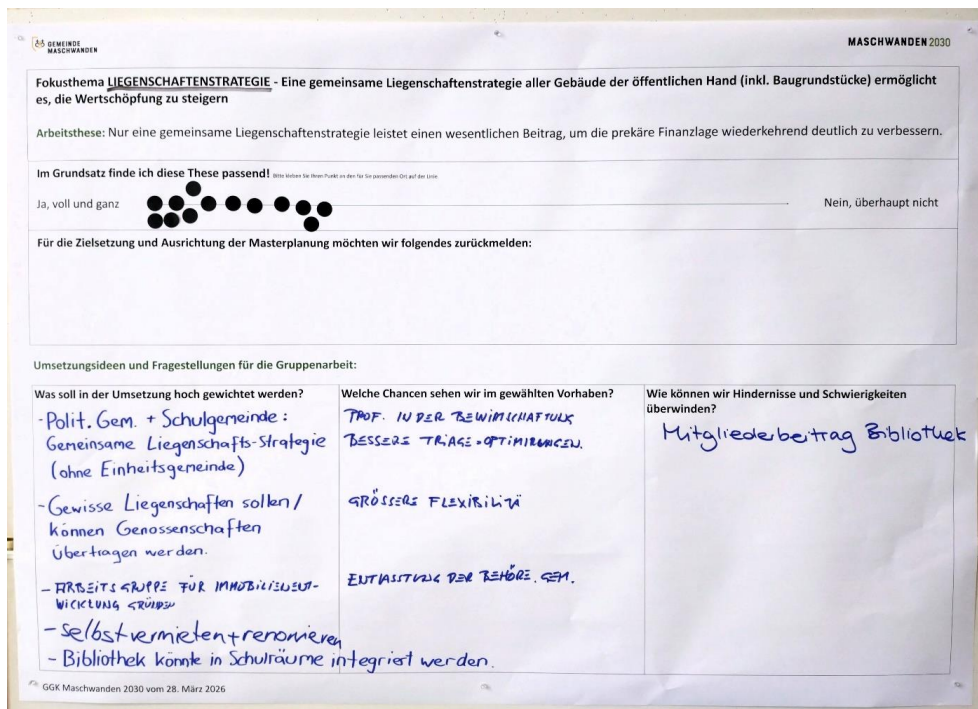 GEMEINDE
MASCHWANDEN
MASCHWANDEN 2030
Fokusthema LIEGENSCHAFTENSTRATEGIE - Eine gemeinsame Liegenschaftenstrategie aller Gebäude der öffentlichen Hand (inkl. Baugrundstücke) ermöglicht
es, die Wertschöpfung zu steigern
Arbeitsthese: Nur eine gemeinsame Liegenschaftenstrategie leistet einen wesentlichen Beitrag, um die prekäre Finanzlage wiederkehrend deutlich zu verbessern.
Im Grundsatz finde ich diese These passend! Bitte kleben Sie Ihren Punkt an den für Sie passenden Ort auf der Linie
Ja, voll und ganz
Nein, überhaupt nicht
Für die Zielsetzung und Ausrichtung der Masterplanung möchten wir folgendes zurückmelden:
Umsetzungsideen und Fragestellungen für die Gruppenarbeit:
Was soll in der Umsetzung hoch gewichtet werden?
- Polit. Gem. + Schulgemeinde:
Gemeinsame Liegenschafts-Strategie
(ohne Einheitsgemeinde)
- Gewisse Liegenschaften sollen/
können Genossenschaften
übertragen werden.
- ARBEITSGRUPPE FÜR IMMOBILIENENT-
WICKLUNG GRÜNDEN
- Selbst vermieten + renovieren
- Bibliothek könnte in Schulräume integriert werden.
Welche Chancen sehen wir im gewählten Vorhaben?
PROF. IN DER
BESSERE TRIAGE + OPTIMIERUNGEN.
GRÖSSERE FLEXIBILITÄ
ENTLASSTUNG DER BEHÖRE. GEM.
Wie können wir Hindernisse und Schwierigkeiten
überwinden?
Mitgliederbeitrag Bibliothek
GGK Maschwanden 2030 vom 28. März 2026